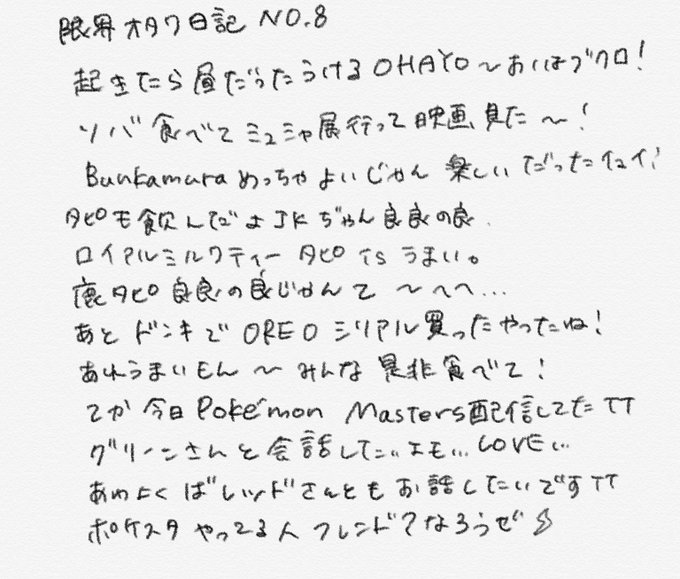 限界オタク日記 NO.8
起きたら昼だったうけるOHAYO〜おいけブクロ!
ソバ食べてミュシャ展行って映画見た〜!
Bunkamuraめっちゃよいじゃん 楽しいだったイェイ!
タピも飲んだよJKぢゃん良良の良
ロイヤルミルクティータピ is うまい。
鹿タピ良良の良じゃんて〜へへ...
あとドンキでOREOシリアル買ったやったね!
あれうまいもん〜みんな是非食べて!
てか今日Pokémon Masters配信してたTT
グリーンさんと会話した...よも...LOVE...
あわよくばレッドさんともお話したいですTT
ポケスタやってる人フレンドなろうぜ